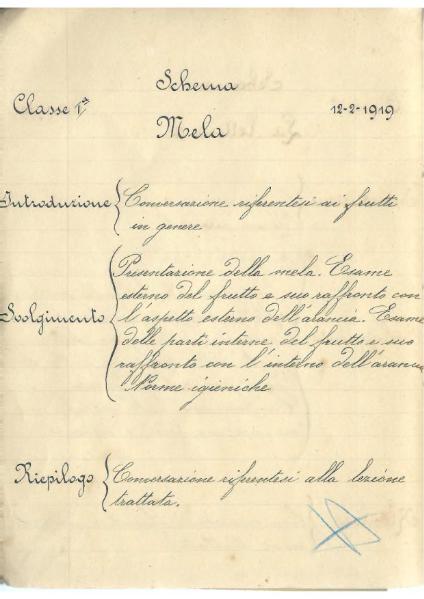 Schema
Classe 1ª
12-2-1919
Mela
Introduzione
Conversazione riferentesi ai frutti
in genere
Svolgimento
Presentazione della mela. Esame
esterno del frutto e suo raffronto con
l'aspetto esterno dell'arancia. Esame
delle parti interne del frutto e suo
raffronto con l'interno dell'arancia
Norme igieniche
Riepilogo
Conversazione riferentesi alla lezione
trattata.